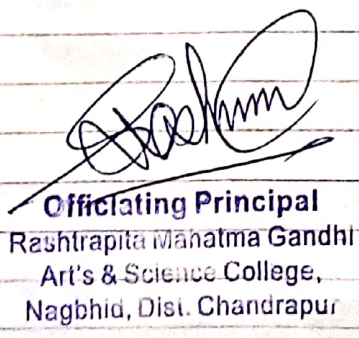 Officiating Principal
Rashtrapita Mahatma Gandhi
Art's & Science College,
Nagbhid, Dist. Chandrapur